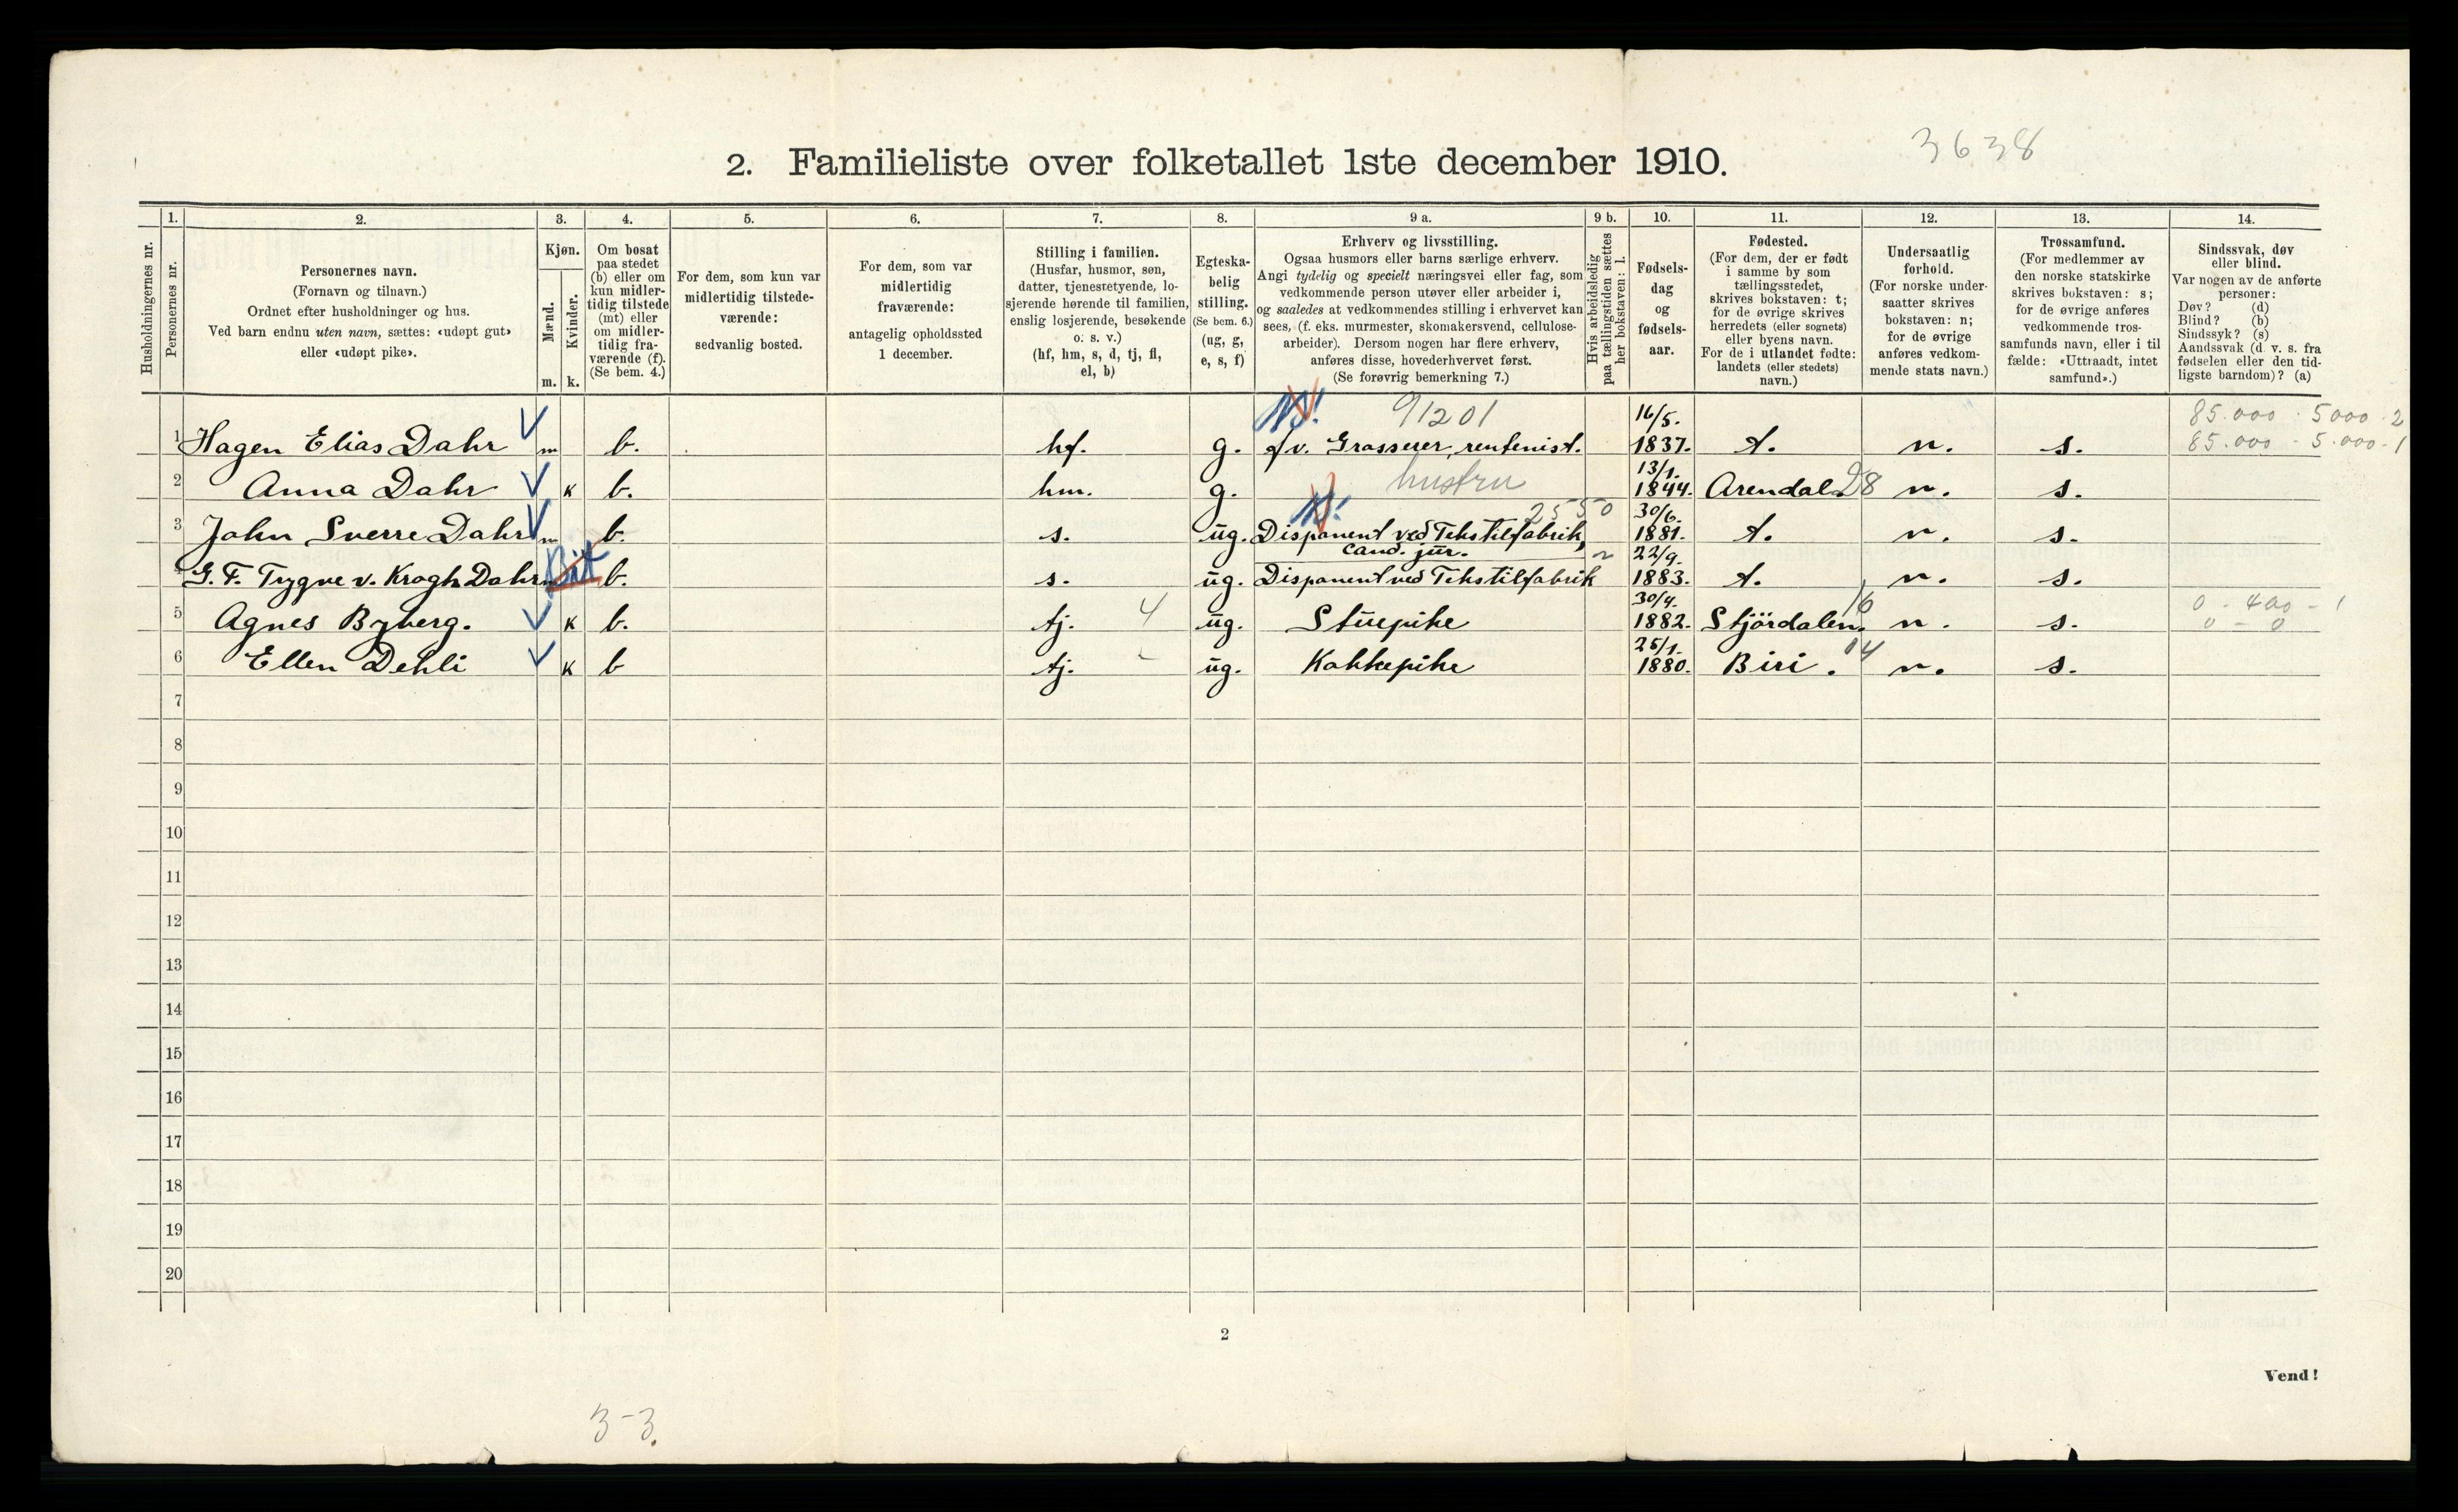 3638
2. Familieliste over folketallet 1ste december 1910.
Husholdningernes nr.
1.
Personernes nr.
2.
Personernes navn.
(Fornavn og tilnavn.)
Ordnet efter husholdninger og hus.
Ved barn endnu uten navn, sættes: «udøpt gut»
eller «udøpt pike».
3.
Kjøn.
Mænd.
Kvinder.
m. k.
4.
Om bosat
paa stedet
(b) eller om
kun midler-
tidig tilstede
(mt) eller
om midler-
tidig fra-
værende (f).
(Se bem. 4.)
5.
For dem, som kun var
midlertidig tilstede-
værende:
sedvanlig bosted.
6.
For dem, som var
midlertidig
fraværende:
antagelig opholdssted
1 december.
7.
Stilling i familien.
(Husfar, husmor, søn,
datter, tjenestetyende, lo-
sjerende hørende til familien,
enslig losjerende, besøkende
o. s. v.)
(hf, hm, s, d, tj, fl,
el, b)
8.
Egteska-
belig
stilling.
(Se bem. 6.)
(ug, g,
e, s, f)
9 a.
Erhverv og livsstilling.
Ogsaa husmors eller barns særlige erhverv.
Angi tydelig og specielt næringsvei eller fag, som
vedkommende person utøver eller arbeider i,
og saaledes at vedkommendes stilling i erhvervet kan
sees, (f. eks. murmester, skomakersvend, cellulose-
arbeider). Dersom nogen har flere erhverv,
anføres disse, hovederhvervet først.
(Se forøvrig bemerkning 7.)
9 b.
Hvis arbeidsledig
paa tællingstiden sættes
her bokstaven: l.
10.
Fødsels-
dag
og
fødsels-
aar.
11.
Fødested.
(For dem, der er født
i samme by som
tællingsstedet,
skrives bokstaven: t;
for de øvrige skrives
herredets (eller sognets)
eller byens navn.
For de i utlandet fødte:
landets (eller stedets)
navn.)
12.
Undersaatlig
forhold.
(For norske under-
saatter skrives
bokstaven: n;
for de øvrige
anføres vedkom-
mende stats navn.)
13.
Trossamfund.
(For medlemmer av
den norske statskirke
skrives bokstaven: s;
for de øvrige anføres
vedkommende tros-
samfunds navn, eller i til
fælde: «Uttraadt, intet
samfund».)
14.
Sindssvak, døv
eller blind.
Var nogen av de anførte
personer:
Døv? (d)
Blind? (b)
Sindssyk? (s)
Aandssvak (d. v. s. fra
fødselen eller den tid-
ligste barndom)? (a)
91201 16/5. 85.000 - 5000 - 2
1 Hagen Elias Dahr m b. hf. g. fv. Grasserer, rentenist. 1837. t. n. s. 85.000 - 5.000 - 1
hustru 13/1.
2 Anna Dahr k b. hm. g. 1844. Arendal 28 n. s.
2550 30/6.
3 John Sverre Dahr m b. s. ug. Disponent ved Tekstilfabrik, 1881. t. n. s.
cand. jur. 22/9.
4 G. F. Trygve v. Krogh Dahr m b. s. ug. Disponent ved Tekstilfabrik 1883. t. n. s.
30/4. 16 0 - 400 - 1
5 Agnes Byberg. k b. tj. 4 ug. Stuepike 1882. Stjördalen. n. s. 0 - 0
25/1. 04
6 Ellen Dehli k b tj. ug. Kokkepike 1880. Biri. n. s.
7
8
9
10
11
12
13
14
15
16
17
18
19
20
2
Vend!
3-3.